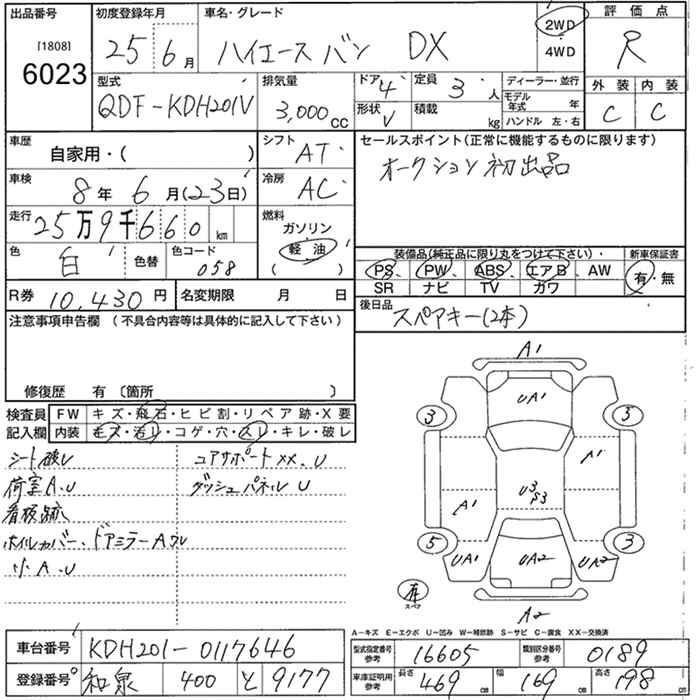 出品番号 初度登録年月 車名・グレード 評価点
[1808] 6023 25 6月 ハイエース バン DX 2WD 4WD R
型式 排気量 ドア 4 定員 3人 ディーラー・並行 外装 内装
QDF-KDH201V 3,000cc 形状 V 積載 kg モデル年式 年 ハンドル 左・右 C C
車歴 自家用・( ) シフト AT セールスポイント(正常に機能するものに限ります)
オークション初出品
車検 8年 6月(23日) 冷房 AC
走行 25万9千660km 燃料 ガソリン 軽油 ( )
色 白 色替 色コード 058
装備品(純正品に限り丸をつけて下さい)・ 新車保証書
PS、PW、ABS、エアB、AW 有・無
SR ナビ TV カワ
R券 10,430円 名変期限 月 日 後日品
スペアキー(2本)
注意事項申告欄 (不具合内容等は具体的に記入して下さい)
修復歴 有 〔箇所 〕
検査員 FW キズ・飛石・ヒビ割・リペア跡・X要
記入欄 内装 キズ・汚レ・コゲ・穴・スレ・キレ・破レ
シート破レ コアサポートXX、U
荷室A、U ダッシュパネルU
看板跡
ホイルカバー、ドアミラーAフレ
小A、U
A1
UA1
3 3
A1
U3
S3
A1
5 3
UA1 UA2 UA2
有 スペア
A2
A-キズ E-エクボ U-凹み W-補修跡 S-サビ C-腐食 XX-交換済
車台番号 KDH201-0117646 型式指定番号 参考 16605 類別区分番号 参考 0189
登録番号 和泉 400 と 9177 車庫証明用 参考 長さ 469cm 幅 169cm 高さ 198cm